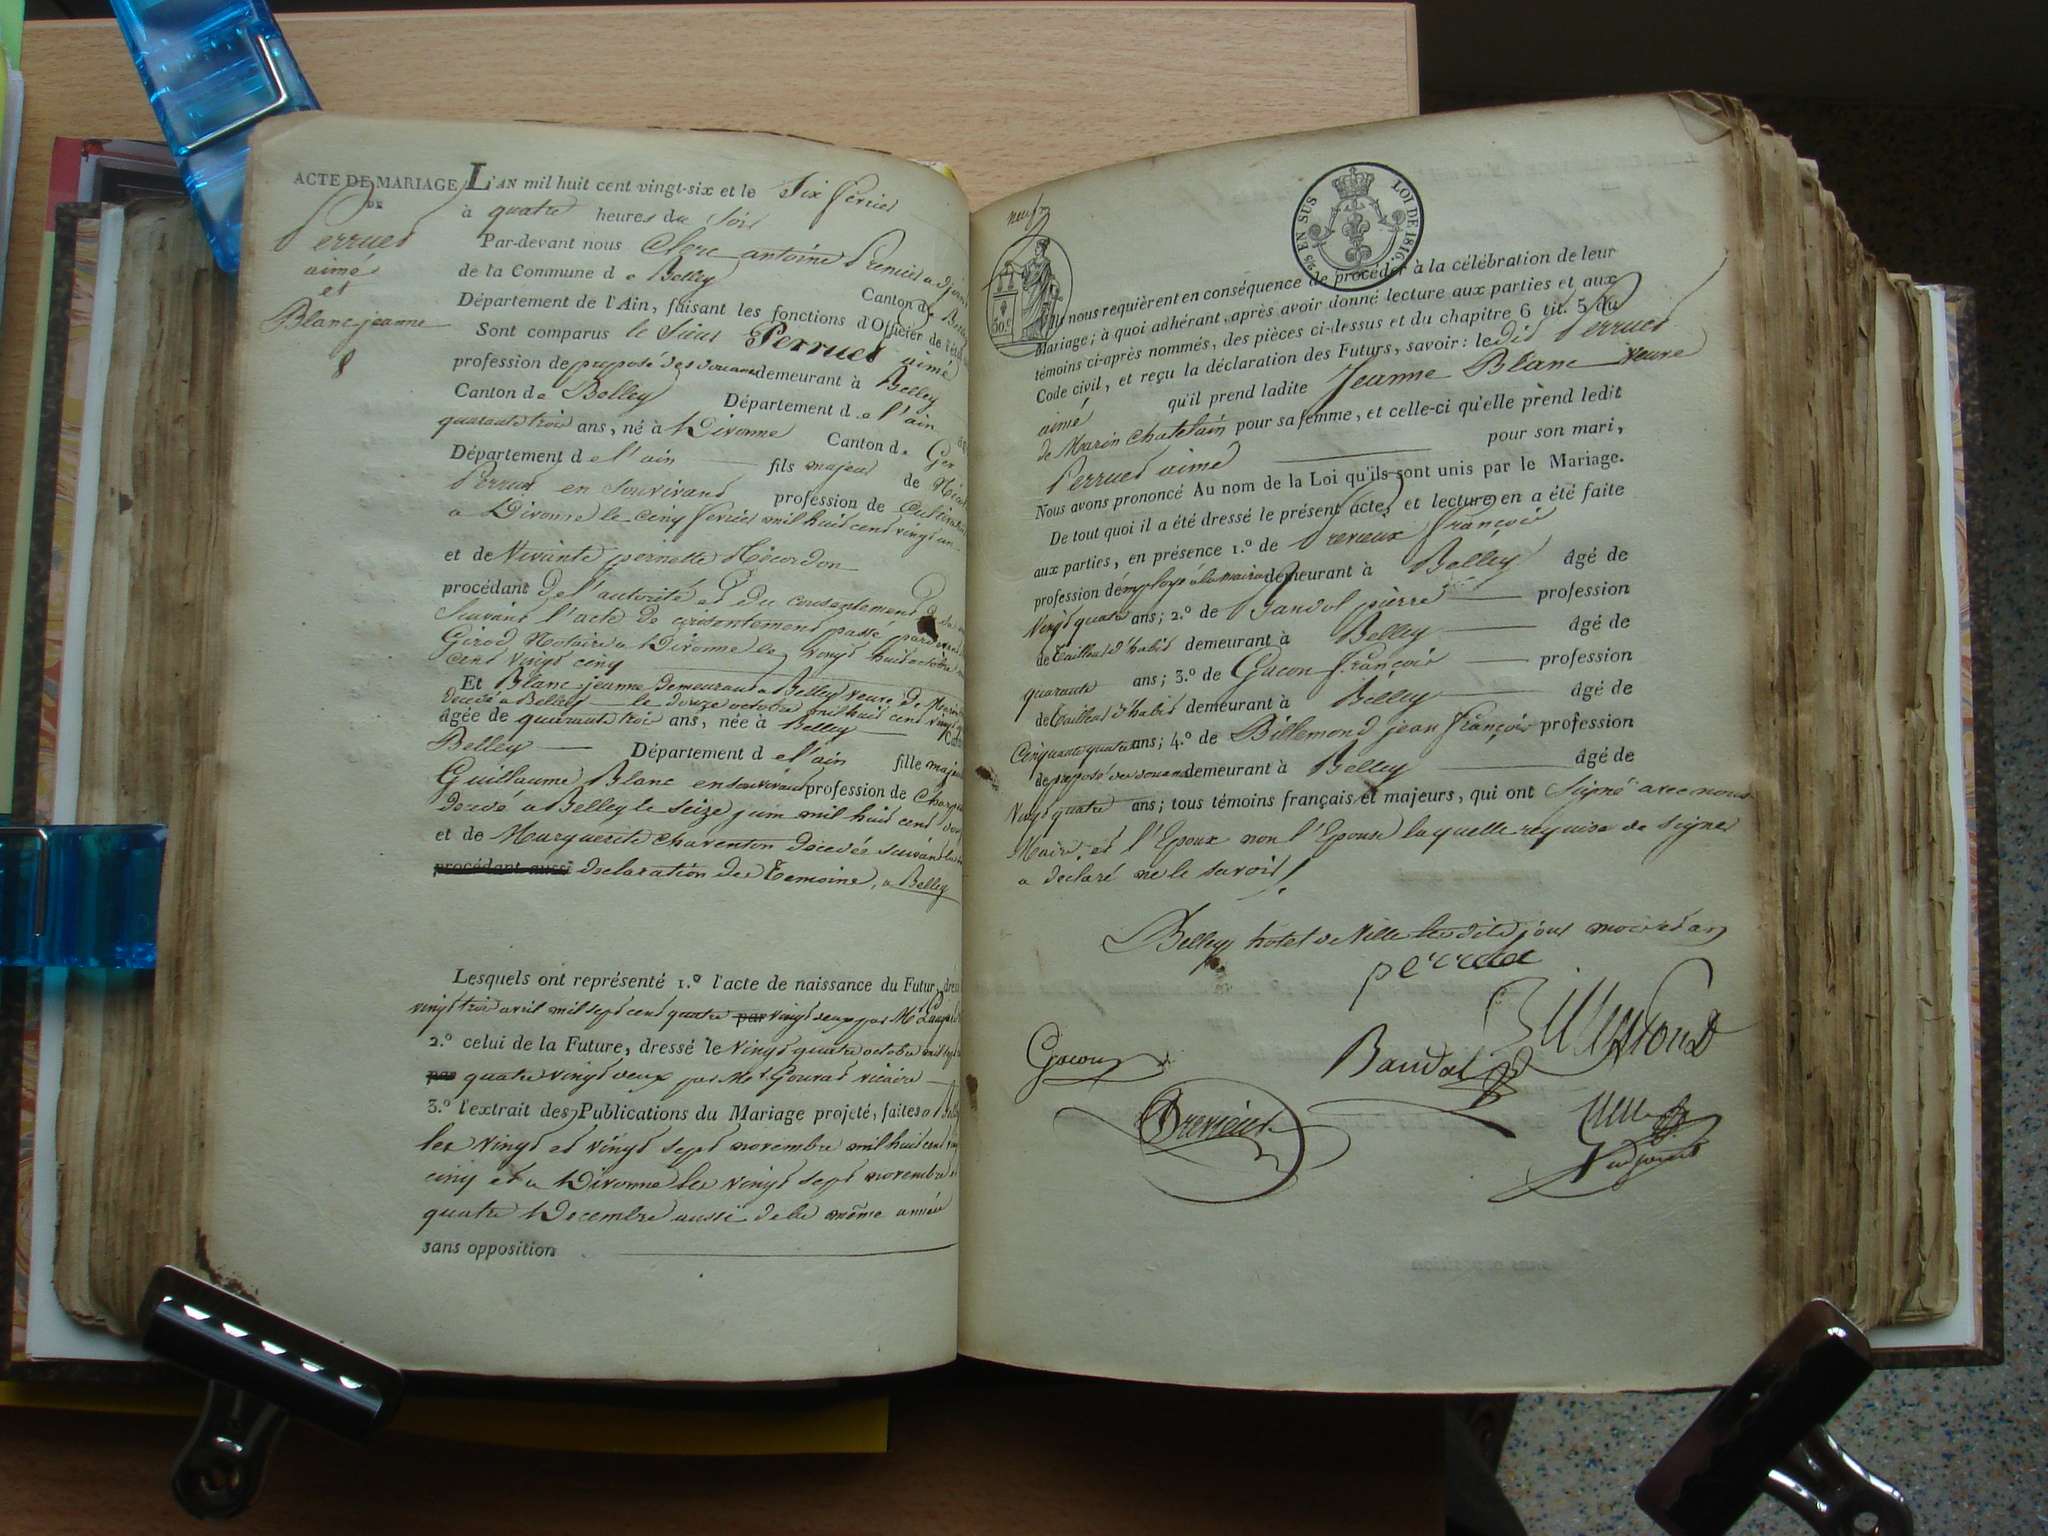 ACTE DE MARIAGE
DE
Perruet
aimé
et
Blanc jeanne
8
L'AN mil huit cent vingt-six et le Six fevrier
à quatre heures du Soir
Par-devant nous Clerc antoine Premier adjoint
de la Commune de Belley Canton de Belley
Département de l'Ain, faisant les fonctions d'Officier de l'état
Sont comparus le Sieur Perruet aimé
profession de preposé des douanes demeurant à Belley
Canton de Belley Département de l'ain
quarante trois ans, né à Divonne Canton de Gex
Département de l'ain fils majeur de
Perruet en Son vivant profession de Cultivateur
a Divonne le cinq fevrier mil huit cent vingt un
et de Vivante pernette
procédant De l'autorité et du consentement de
Suivant l'acte de consentement passé pardevant
Girod Notaire a Divonne le Vingt huit octobre
cent vingt cinq
Et Blanc jeanne demeurant a Belley veuve de
décédé a Belley le douze octobre mil huit cent vingt
âgée de quarante trois ans, née à Belley
Belley Département de l'ain fille majeure
Guillaume Blanc en son vivant profession de
décédé a Belley le seize juin mil huit cent
et de Marguerite Charenton décédée suivant la
procédant aussi declaration des Temoins, a Belley
Lesquels ont représenté 1.º l'acte de naissance du Futur,
vingt trois avril mil sept cent quatre par vingt deux par Mr
2.º celui de la Future, dressé le Vingt quatre octobre mil sept
par quatre vingt deux par Mr Gouvat vicaire
3.º l'extrait des Publications du Mariage projeté, faites a Belley
les vingt et vingt sept novembre mil huit cent
cinq et a Divonne les vingt sept novembre
quatre Decembre aussi de la même année
sans opposition
neuf
50 c
25 EN SUS LOI DE 1816.
nous requièrent en conséquence de procéder à la célébration de leur
Mariage; à quoi adhérant, après avoir donné lecture aux parties et aux
témoins ci-après nommés, des pièces ci-dessus et du chapitre 6 tit. 5 du
Code civil, et reçu la déclaration des Futurs, savoir: le dit Perruet
aimé qu'il prend ladite Jeanne Blanc veuve
de Marin Chatelain pour sa femme, et celle-ci qu'elle prend ledit
Perruet aimé pour son mari,
Nous avons prononcé Au nom de la Loi qu'ils sont unis par le Mariage.
De tout quoi il a été dressé le présent acte, et lecture en a été faite
aux parties, en présence 1.º de Prerieux françois
profession d'employé à la mairie demeurant à Belley âgé de
Vingt quatre ans; 2.º de Bandol pierre profession
de Tailleur d'habit demeurant à Belley âgé de
quarante ans; 3.º de Gacon françois profession
de Tailleur d'habit demeurant à Belley âgé de
Cinquante quatre ans; 4.º de Billemond jean françois profession
de preposé des douanes demeurant à Belley âgé de
Vingt quatre ans; tous témoins français et majeurs, qui ont Signé avec nous
Maire, et l'Epoux non l'Epouse laquelle requise de signer
a declaré ne le savoir
Belley hotel de Ville les dits jour mois et an
perruet
Billemond
Gacon
Bandol
Prerieux
Clerc
adjoint